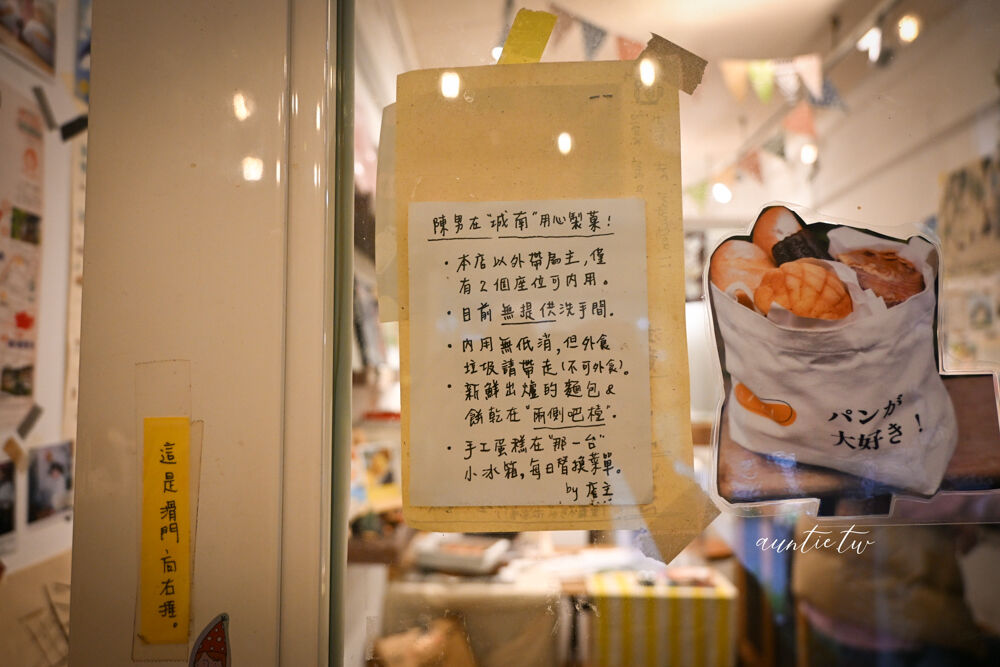 陳男在"城南"用心製菓!
・本店以外帶為主,僅
有2個座位可內用。
・目前無提供洗手間。
・內用無低消,但外食
垃圾請帶走(不可外食)。
・新鮮出爐的麵包&
餅乾在"兩側吧檯"。
・手工蛋糕在"那一台"
小冰箱,每日替換菜單。
by 店主
這是滑門,向右推。
パンが
大好き!
auntie.tw